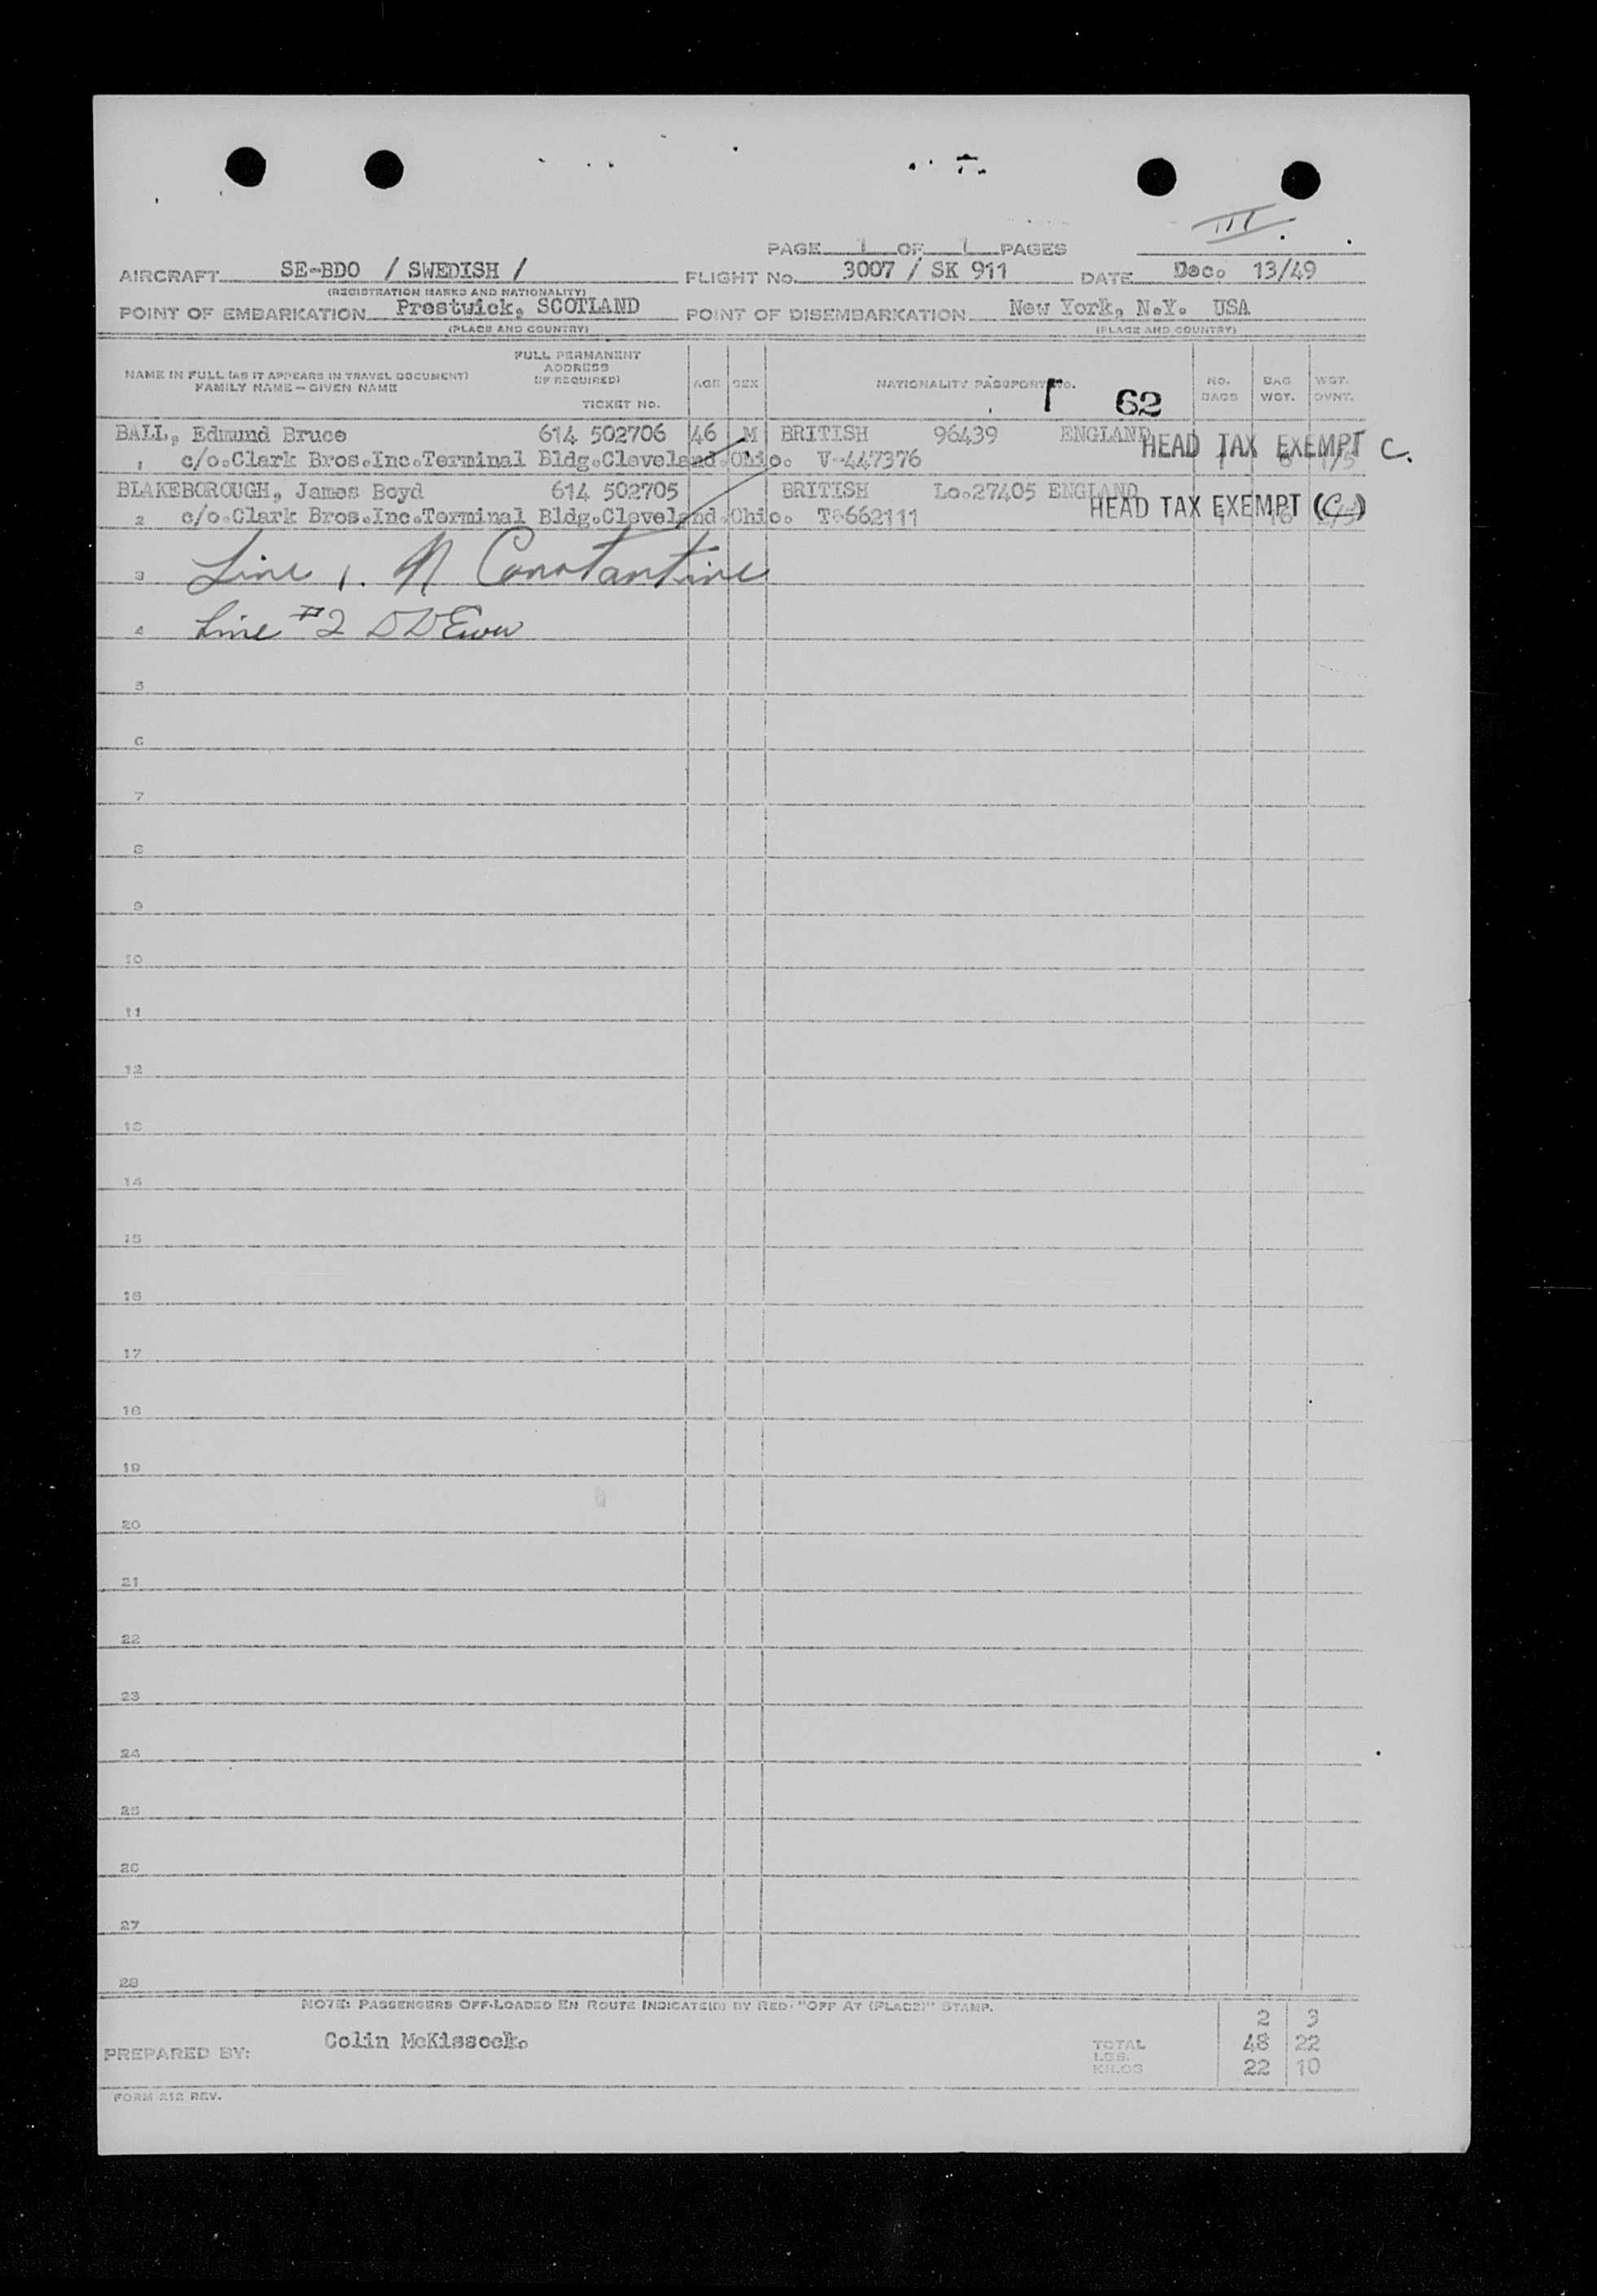 III.
PAGE 1 OF 1 PAGES
AIRCRAFT SE-BDO / SWEDISH / FLIGHT No. 3007 / SK 911 DATE Dec. 13/49
(REGISTRATION MARKS AND NATIONALITY)
POINT OF EMBARKATION Prestwick, SCOTLAND POINT OF DISEMBARKATION New York, N.Y. USA
(PLACE AND COUNTRY) (PLACE AND COUNTRY)
NAME IN FULL (AS IT APPEARS IN TRAVEL DOCUMENT)
FAMILY NAME — GIVEN NAME
FULL PERMANENT
ADDRESS
(IF REQUIRED)
TICKET No.
AGE SEX NATIONALITY PASSPORT No. 62 NO. BAGS BAG WGT. WGT. OVNT.
BALL, Edmund Bruce 614 502706 46 M BRITISH 96439 ENGLAND HEAD TAX EXEMPT C.
1 c/o.Clark Bros.Inc.Terminal Bldg.Cleveland.Ohio. V-447376
BLAKEBOROUGH, James Boyd 614 502705 BRITISH Lo.27405 ENGLAND HEAD TAX EXEMPT (C)
2 c/o.Clark Bros.Inc.Terminal Bldg.Cleveland.Ohio. T-662111
3 Line 1. N Constantine
4 Line #2 D D
5
6
7
8
9
10
11
12
13
14
15
16
17
18
19
20
21
22
23
24
25
26
27
28
NOTE: PASSENGERS OFF-LOADED EN ROUTE INDICATE(D) BY RED "OFF AT (PLACE)" STAMP.
2 3
PREPARED BY: Colin McKissock. TOTAL LBS. 48 22
KILOS 22 10
FORM 212 REV.